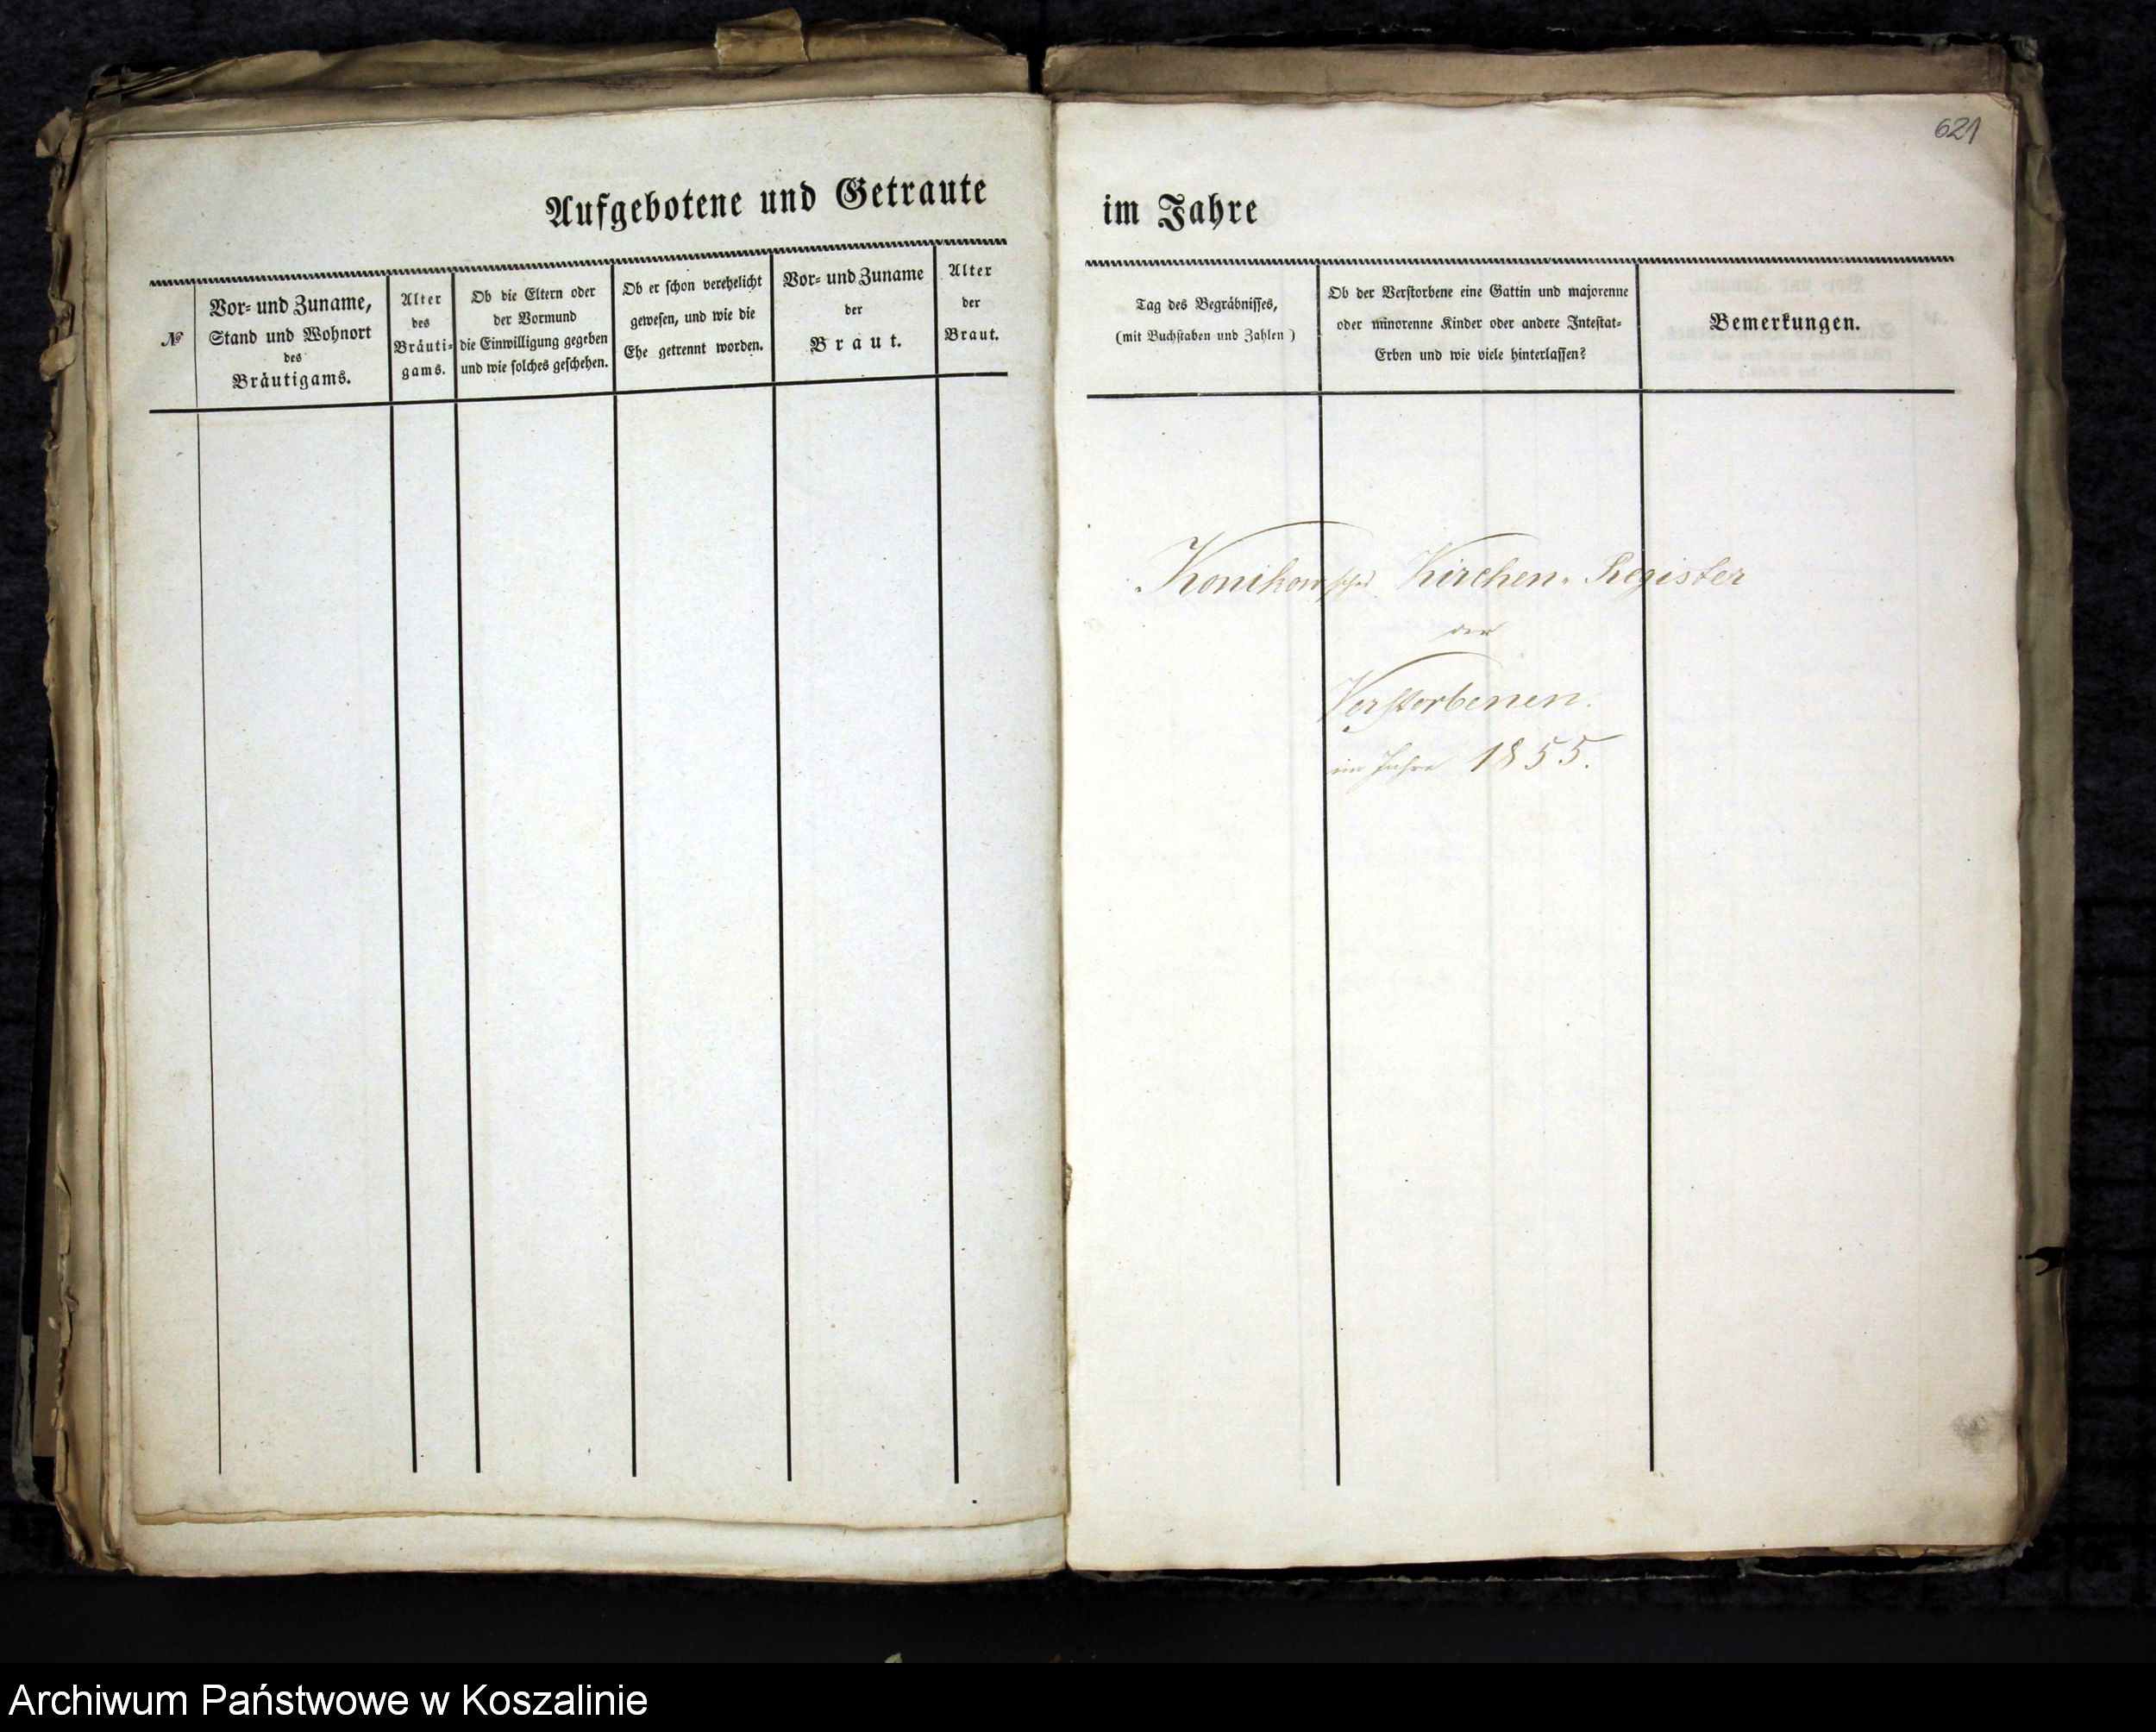 Aufgebotene und Getraute
№
Vor- und Zuname,
Stand und Wohnort
des
Bräutigams.
Alter
des
Bräuti-
gams.
Ob die Eltern oder
der Vormund
die Einwilligung gegeben
und wie solches geschehen.
Ob er schon verehelicht
gewesen, und wie die
Ehe getrennt worden.
Vor- und Zuname
der
Braut.
Alter
der
Braut.
621
im Jahre
Tag des Begräbnisses,
(mit Buchstaben und Zahlen )
Ob der Verstorbene eine Gattin und majorenne
oder minorenne Kinder oder andere Intestat-
Erben und wie viele hinterlassen?
Bemerkungen.
Konikowsches Kirchen-Register
der
Verstorbenen.
im Jahre 1855.
Archiwum Państwowe w Koszalinie